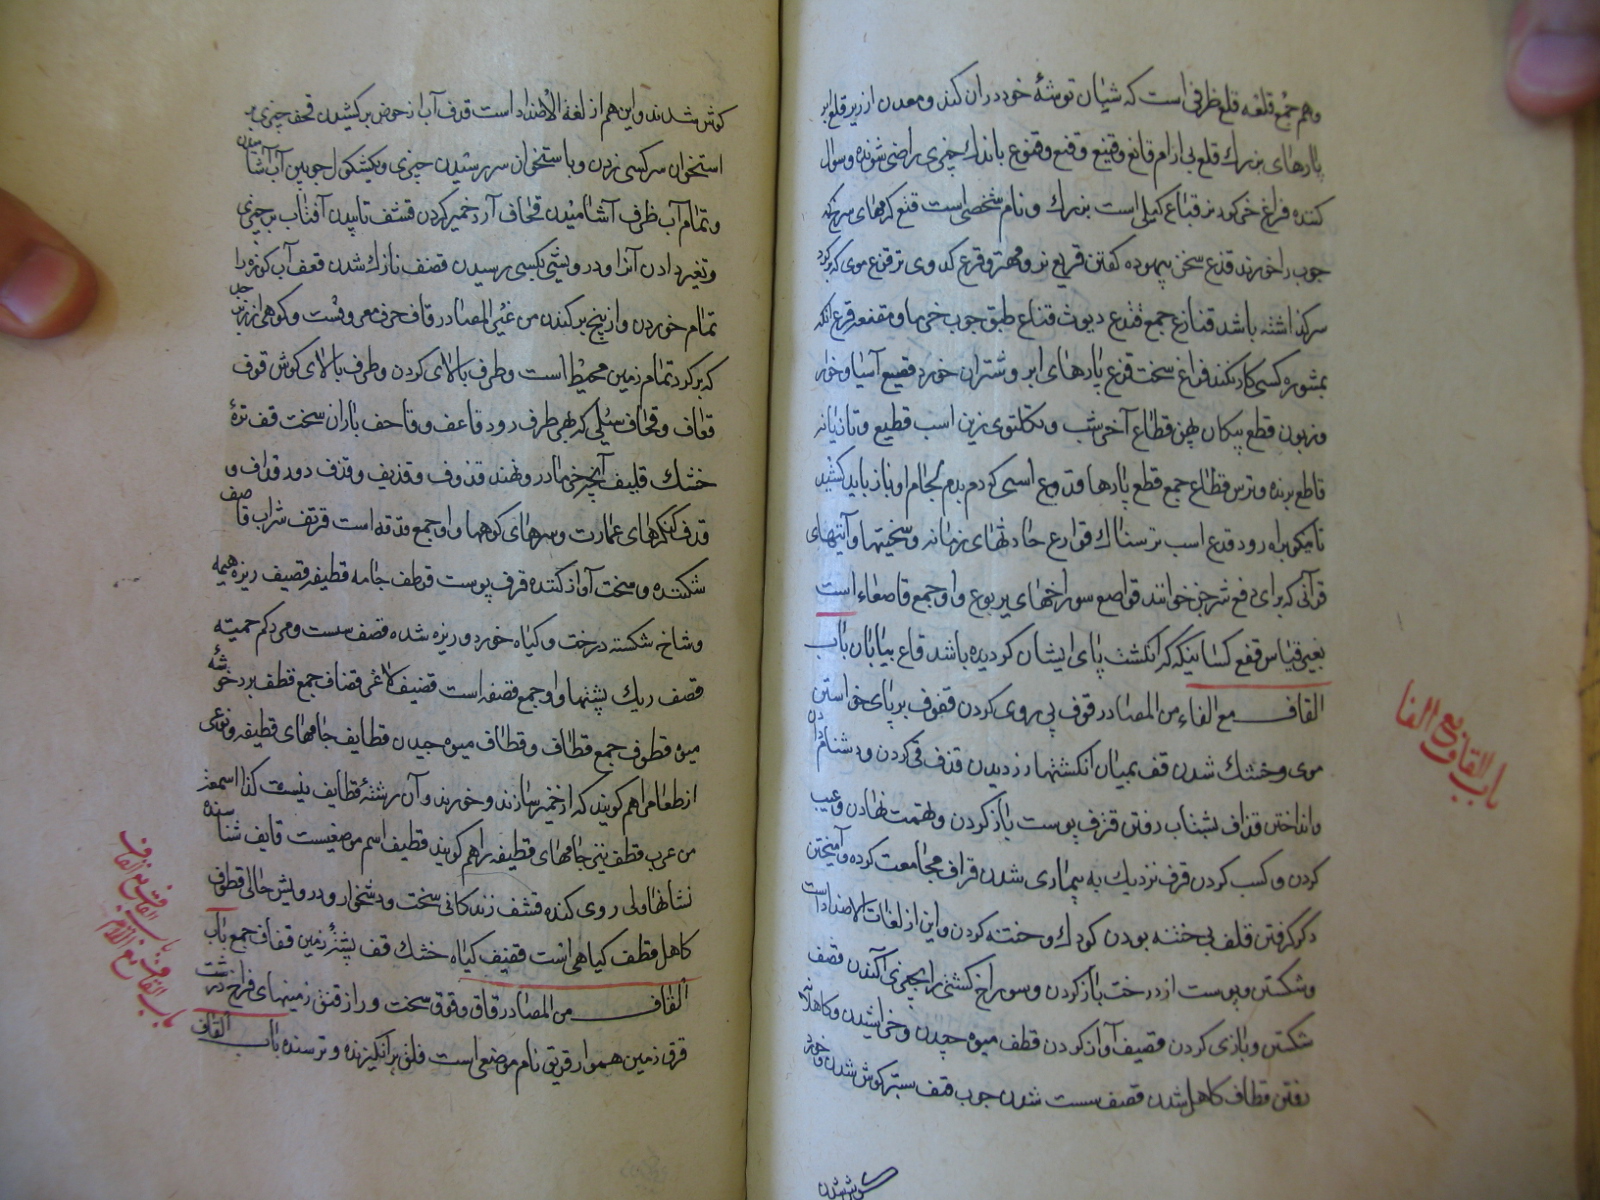 وهم جمع قلفه قلع ظرفی است که شبان توشهٔ خود دران کند و معدن ارزیز قلع ابر
پارهای بزرك قلع بی ارام قانع و قنیع و قنع و قنوع باندك چیزی راضی شونده و سوال
کننده فراغ خر کود نر قباع کیلی است بزرك و نام شخصی است قنع کرمهای سرخ که
چوب را خورند قذع سخن بیهوده کفتن قریع نر و مهتر و قرع کدوی تر قنزع موی که بر کرد
سر کذاشته باشد قنازع جمع قنذع دیوث قناع طبق چوب خرما و مقنعه قرع انکه
بمشوره کسی کار نکند قزع پارهای ابر و شتران خورد قصیع آسیا و خوار
و زبون قطع پیکان پهن قطاع آخر شب و تکلتوی زین اسب قطیع و تازیانه
قاطع برنده و ترس قطاع جمع قطع پارها قدوع اسبی که دم بدم لجام او باز باید کشید
تا نیکو براه رود قدع اسب ترسناك قوارع حادثهای زمانه و سختیها و آیتهای
قرآنی که برای دفع شر جن خوانند قواصع سوراخهای یربوع و او جمع قاصعاء است
بغیر قیاس قفع کسانیکه که انکشت پای ایشان کردیده باشد قاع بیابان باب
القاف مع الفاء من المصادر قوف پی روی کردن قفوف بر پای خواستن
موی و خشك شدن قف بمیان انکشتها دزدیدن قذف قی کردن و دشنام دادن
و انداختن قذاف بشتاب رفتن قرف پوست باز کردن و تهمت نهادن و عیب
کردن و کسب کردن قرف نزدیك به بیماری شدن قراف مجامعت کرده و آمیختن
در کرفتن قلف بی ختنه بودن کودك و ختنه کردن و این از لغات الاضداد است
و شکستن و پوست از درخت باز کردن و سوراخ کشتی را بچیزی آکندن قصف
شکستن و بازی کردن قصیف آواز کردن قطف میوه چیدن و خراشیدن و کاهلانه
رفتن قطاف کاهل شدن قصف سست شدن چوب قنف سبتر کوش شدن و خورد
کوش شدن
باب القاف مع الفا
کوش شدند و این هم از لغة الاضداد است قدف آب از حوض برکشیدن قحف چیزی بر
استخوان سر کسی زدن و با ستخوان سر رسیدن چیزی و بکشکول چوبین آب آشامیدن
و تمام آب ظرف آشامیدن قحاف آرد خمیر کردن قشف تابیدن آفتاب بر چیزی
و تغیر دادن آنرا و درویشی بکسی رسیدن قضف نازك شدن قعف آب کوزه را
تمام خوردن و از بیخ برکندن من غیر المصادر قاف حرف معروفست و کوهی از زبرجد
که بر کرد تمام زمین محیط است و طرف بالای کردن و طرف بالای کوش قوف
قعاف و قحاف سیلی که بهر طرف رود قاعف و قاحف باران سخت قف ترهٔ
خشك قلیف آنچه خرما در و نهند قذوف و قذیف و قذف دور قذاف و
قذف کنکرهای عمارت و سرهای کوهها و او جمع قذفه است قرقف شراب قاصف
شکننده و سخت آواز کننده قرف پوست قرطف جامه قطیفه قصیف ریزه هیمه
و شاخ شکسته درخت و کیاه خورد و ریزه شده قصف سست و مرد کم حمیت
قصف ریك پشتها و او جمع قصفه است قضیف لاغر قضاف جمع قطف برد خوشهٔ
میوه قطوف جمع قطاف و قطاف میوه چیدن قطایف جامهای قطیفه و نوعی
از طعام را هم کویند که از خمیر سازند و خورند و آن رشتهٔ قطایف نیست کذا اسمعنه
من عرب قطف نیز جامهای قطیفه را هم کویند قطیف اسم موضعیست قایف شناسنده
نشانها و پی روی کننده قشف زندکانی سخت و دشخوار و درویش حالی قطوف
کاهل قطف کیاهی است قفیف کیاه خشك قف پشتهٔ زمین قفاف جمع باب
القاف من المصادر قاق و قوق سخت و راز قنق زمینهای فراخ درشت
قرق زمین هموار قریق نام موضعی است قلق بر انکیزنده و ترسنده باب القاف
باب القاف مع القاف
باب القاف مع اللام